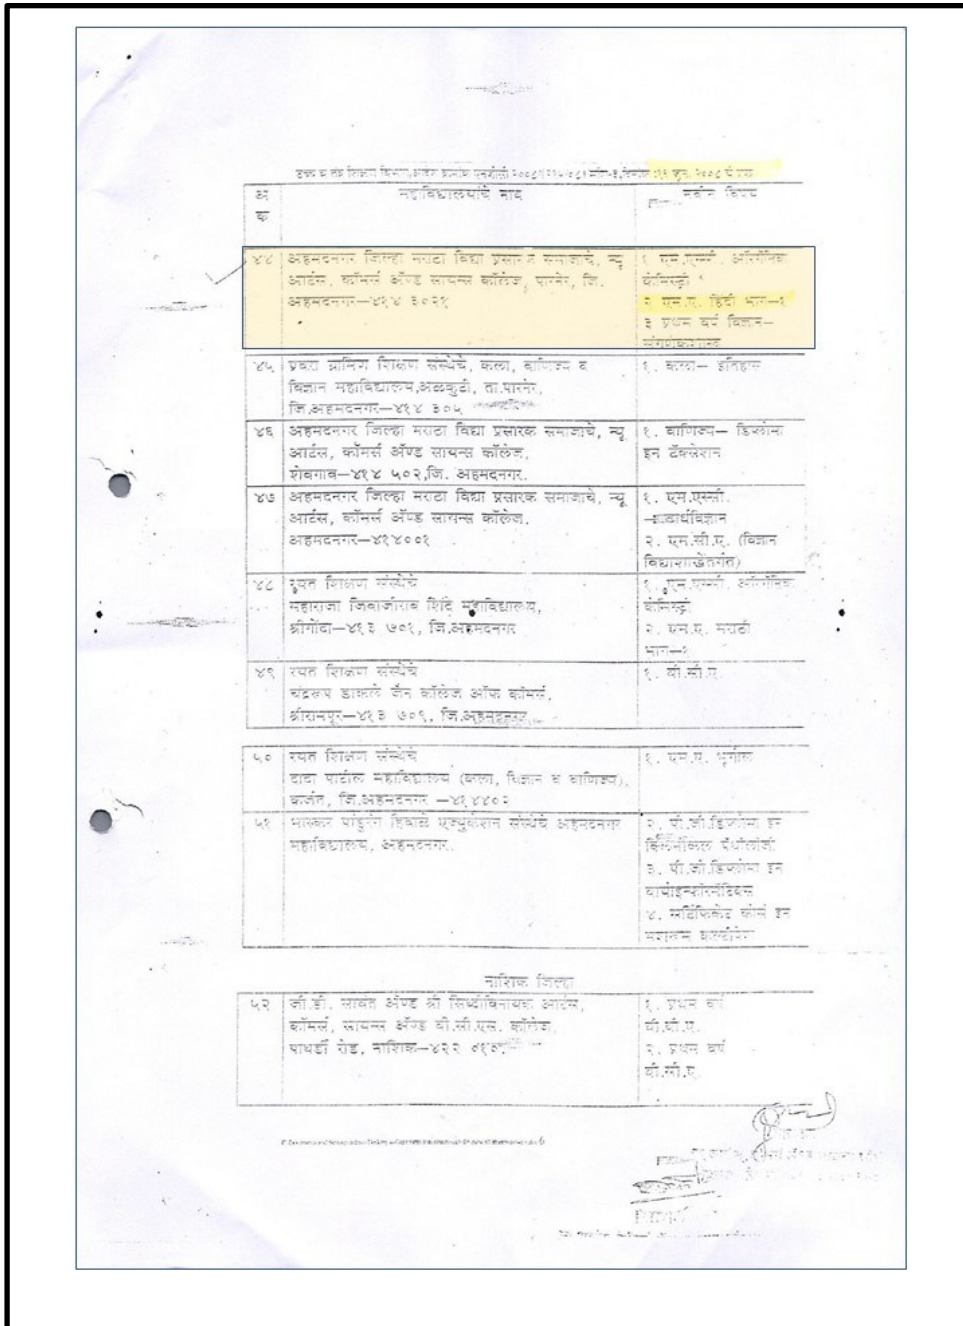 उच्च व तंत्र शिक्षण विभाग, २००८ जून, २००८ चे पत्र
अ क्र
महाविद्यालयाचे नाव
नवीन विषय
४४
अहमदनगर जिल्हा मराठा विद्या प्रसारक समाजाचे, न्यू
आर्टस, कॉमर्स ॲण्ड सायन्स कॉलेज, पारनेर, जि.
अहमदनगर—४१४ ३०२१
१. एम.एस्सी. ऑरगॅनिक
केमिस्ट्री
२ एम.ए. हिंदी भाग—१
३ प्रथम वर्ष विज्ञान—
संगणकशास्त्र
४५
प्रवरा ग्रामिण शिक्षण संस्थेचे, कला, वाणिज्य व
विज्ञान महाविद्यालय,अळकुटी, ता.पारनेर,
जि.अहमदनगर—४१४ ३०५
१. कला— इतिहास
४६
अहमदनगर जिल्हा मराठा विद्या प्रसारक समाजाचे, न्यू
आर्टस, कॉमर्स ॲण्ड सायन्स कॉलेज,
शेवगाव—४१४ ५०२,जि. अहमदनगर.
१. वाणिज्य— डिप्लोमा
इन टॅक्सेशन
४७
अहमदनगर जिल्हा मराठा विद्या प्रसारक समाजाचे, न्यू
आर्टस, कॉमर्स ॲण्ड सायन्स कॉलेज.
अहमदनगर—४१४००१
१. एम.एस्सी.
—पदार्थविज्ञान
२. एम.सी.ए. (विज्ञान
विद्याशाखेंतर्गत)
४८
रयत शिक्षण संस्थेचे
महाराजा जिवाजीराव शिंदे महाविद्यालय,
श्रीगोंदा—४१३ ७०१, जि.अहमदनगर
१. एम.एस्सी. ऑरगॅनिक
केमिस्ट्री
२. एम.ए. मराठी
भाग—१
४९
रयत शिक्षण संस्थेचे
चंद्ररूप डाकले जैन कॉलेज ऑफ कॉमर्स,
श्रीरामपूर—४१३ ७०९, जि.अहमदनगर
१. बी.सी.ए.
५०
रयत शिक्षण संस्थेचे
दादा पाटील महाविद्यालय (कला, विज्ञान व वाणिज्य),
कर्जत, जि.अहमदनगर —४१४४०२
१. एम.ए. भूगोल
५१
भास्कर पांडुरंग हिवाळे एज्युकेशन संस्थेचे अहमदनगर
महाविद्यालय, अहमदनगर.
२. पी.जी.डिप्लोमा इन
क्लिनीकल पॅथॉलॉजी
३. पी.जी.डिप्लोमा इन
बायोइन्फॉरमॅटिक्स
४. सर्टिफिकेट कोर्स इन
मशरूम कल्टीवेशन
नाशिक जिल्हा
५२
जी.डी. सावंत ॲण्ड श्री सिध्दीविनायक आर्टस,
कॉमर्स, सायन्स ॲण्ड बी.सी.एस. कॉलेज,
पाथर्डी रोड, नाशिक—४२२ ०१०.
१. प्रथम वर्ष
बी.बी.ए.
२. प्रथम वर्ष
बी.सी.ए.